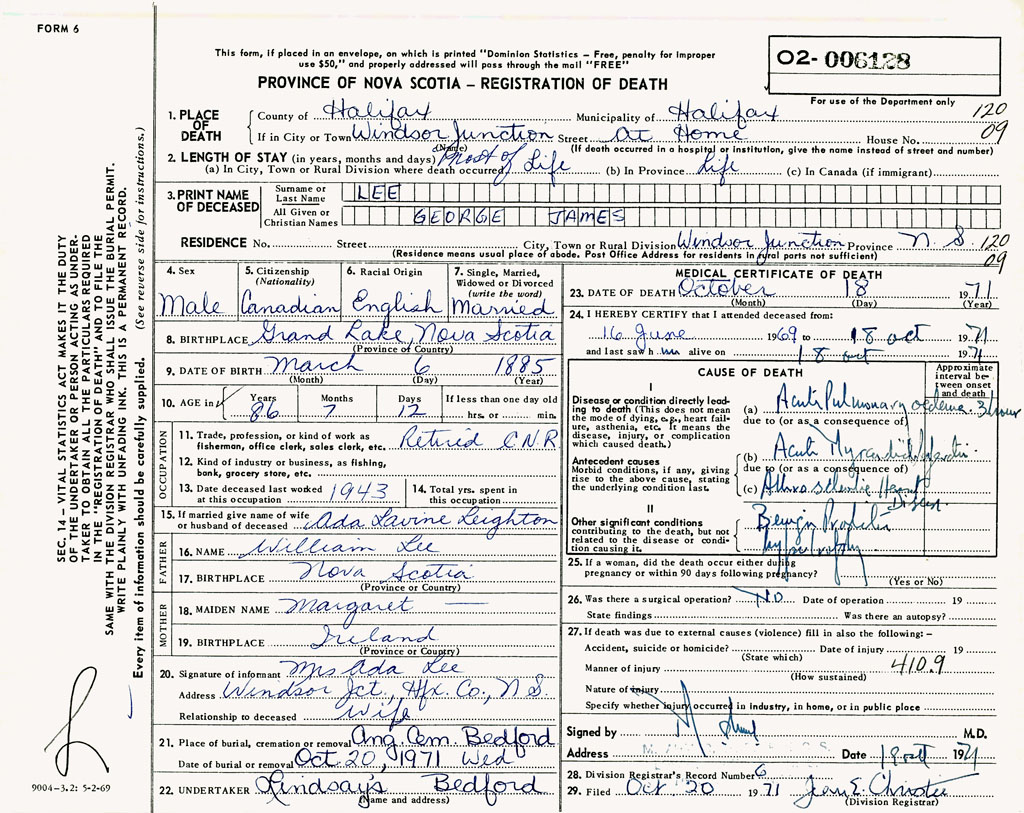 FORM 6
This form, if placed in an envelope, on which is printed "Dominion Statistics – Free, penalty for improper
use $50," and properly addressed will pass through the mail "FREE"
PROVINCE OF NOVA SCOTIA – REGISTRATION OF DEATH
02- 006128
For use of the Department only
120
09
1. PLACE OF DEATH
County of Halifax Municipality of Halifax
If in City or Town Windsor Junction Street At Home House No.
(Name) (If death occurred in a hospital or institution, give the name instead of street and number)
2. LENGTH OF STAY (in years, months and days) Most of Life
(a) In City, Town or Rural Division where death occurred (b) In Province Life (c) In Canada (if immigrant)
3. PRINT NAME OF DECEASED
Surname or Last Name LEE
All Given or Christian Names GEORGE JAMES
RESIDENCE No. Street City, Town or Rural Division Windsor Junction Province N.S. 120
09
(Residence means usual place of abode. Post Office Address for residents in rural parts not sufficient)
4. Sex
Male
5. Citizenship (Nationality)
Canadian
6. Racial Origin
English
7. Single, Married, Widowed or Divorced (write the word)
Married
8. BIRTHPLACE Grand Lake, Nova Scotia
(Province of Country)
9. DATE OF BIRTH March 6 1885
(Month) (Day) (Year)
10. AGE in Years Months Days If less than one day old
86 7 12 hrs. or min.
OCCUPATION
11. Trade, profession, or kind of work as
fisherman, office clerk, sales clerk, etc. Retired C.N.R
12. Kind of industry or business, as fishing,
bank, grocery store, etc.
13. Date deceased last worked
at this occupation 1943
14. Total yrs. spent in
this occupation
15. If married give name of wife
or husband of deceased Ada Lavine Leighton
FATHER
16. NAME William Lee
17. BIRTHPLACE Nova Scotia
(Province or Country)
MOTHER
18. MAIDEN NAME Margaret —
19. BIRTHPLACE Ireland
(Province or Country)
20. Signature of informant Mrs Ada Lee
Address Windsor Jct., Hfx. Co., N.S.
Relationship to deceased Wife
21. Place of burial, cremation or removal Ang Cem Bedford
Date of burial or removal Oct. 20, 1971 Wed
22. UNDERTAKER Lindsay's Bedford
(Name and address)
MEDICAL CERTIFICATE OF DEATH
23. DATE OF DEATH October 18 1971
(Month) (Day) (Year)
24. I HEREBY CERTIFY that I attended deceased from:
16 June 1969 to 18 oct 1971
and last saw him alive on 18 oct 1971
CAUSE OF DEATH
Approximate interval between onset and death
I
Disease or condition directly leading
to death (This does not mean
the mode of dying, e.g., heart failure,
asthenia, etc. It means the
disease, injury, or complication
which caused death.)
(a) Acute Pulmonary oedema 3 hour
due to (or as a consequence of)
Antecedent causes
Morbid conditions, if any, giving
rise to the above cause, stating
the underlying condition last.
(b) Acute Myocardial
due to (or as a consequence of)
(c) Heart Disease
II
Other significant conditions
contributing to the death, but not
related to the disease or condition
causing it.
Benign
hypertrophy
25. If a woman, did the death occur either during
pregnancy or within 90 days following pregnancy?
(Yes or No)
26. Was there a surgical operation? No Date of operation 19
State findings Was there an autopsy?
27. If death was due to external causes (violence) fill in also the following: –
Accident, suicide or homicide? Date of injury 19
(State which)
Manner of injury 410.9
(How sustained)
Nature of injury
Specify whether injury occurred in industry, in home, or in public place
Signed by M.D.
Address Date 18 oct 1971
28. Division Registrar's Record Number 6
29. Filed Oct. 20 1971 Jean E. Christie
(Division Registrar)
SEC. 14 – VITAL STATISTICS ACT MAKES IT THE DUTY
OF THE UNDERTAKER OR PERSON ACTING AS UNDER-
TAKER TO OBTAIN ALL THE PARTICULARS REQUIRED
IN THE "REGISTRATION OF DEATH" AND TO FILE THE
SAME WITH THE DIVISION REGISTRAR WHO SHALL ISSUE THE BURIAL PERMIT.
WRITE PLAINLY WITH UNFADING INK. THIS IS A PERMANENT RECORD.
Every item of information should be carefully supplied. (See reverse side for instructions.)
9004-3.2: 5-2-69